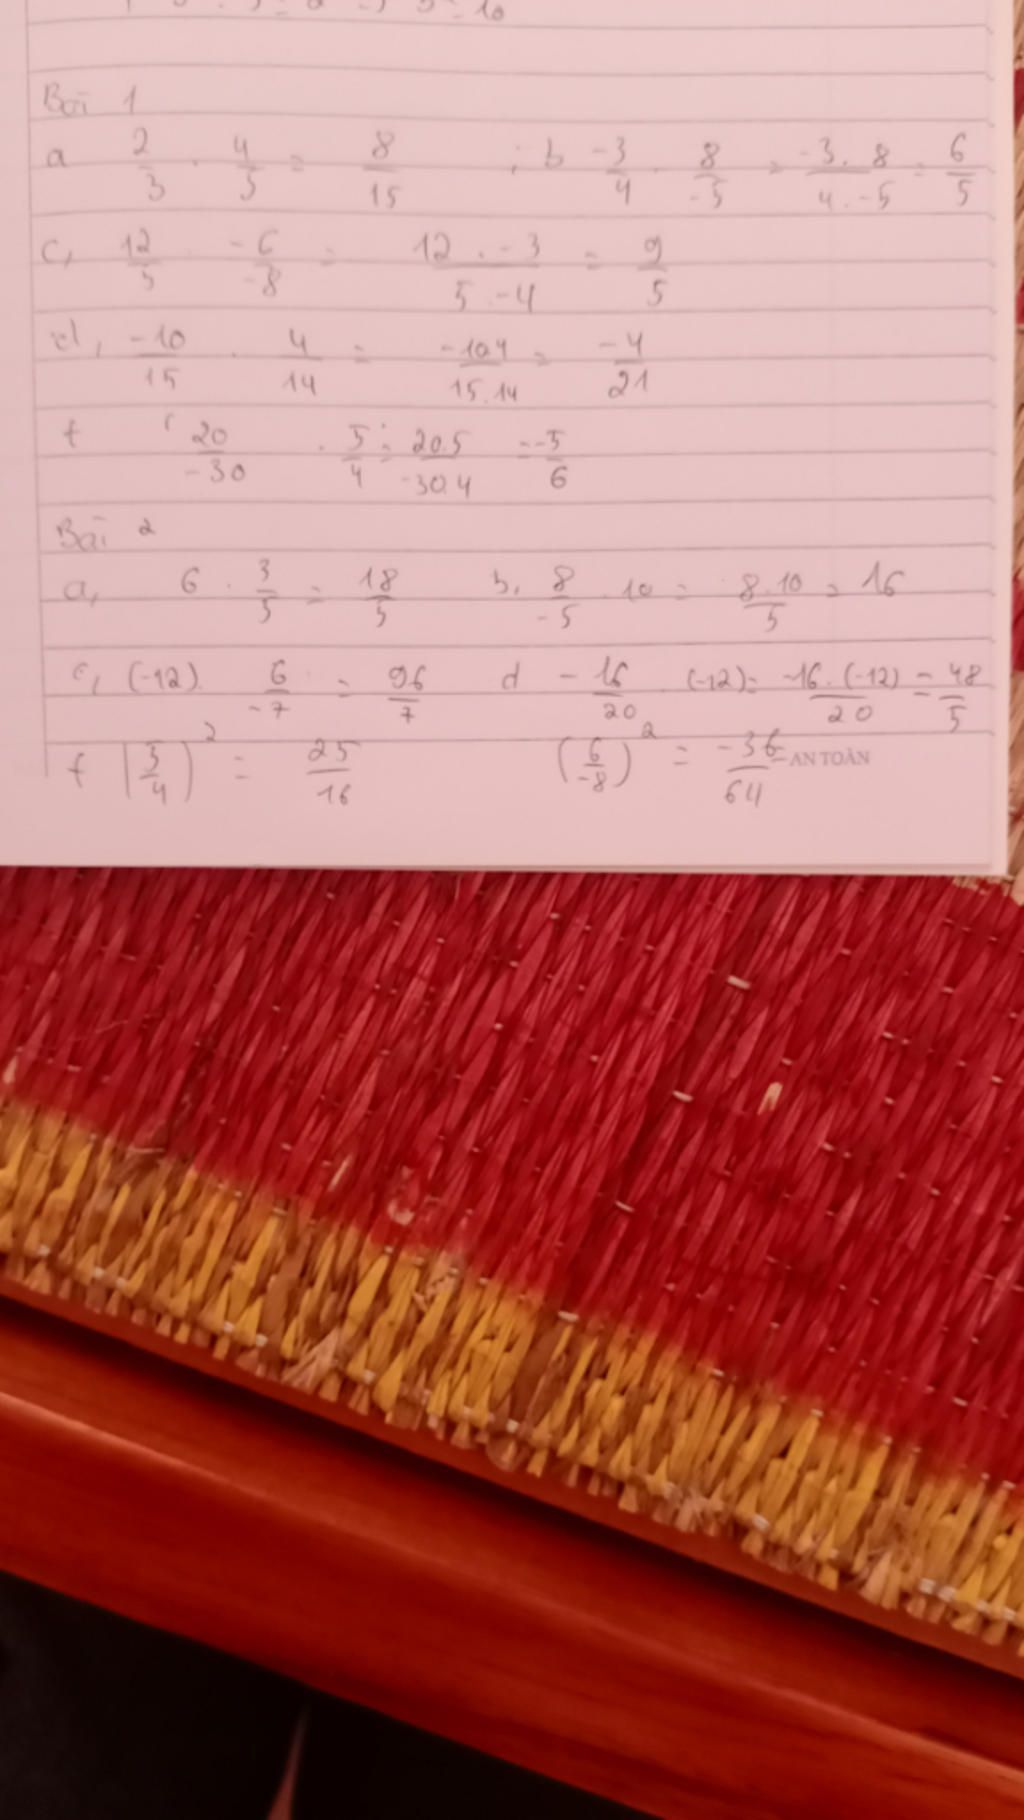 Bài 1
a 2/3 . 4/5 = 8/15 ; b -3/4 . 8/-5 = -3.8/4.-5 = 6/5
c, 12/5 . -6/-8 = 12.-3/5.-4 = 9/5
d, -10/15 . 4/14 = -10.4/15.14 = -4/21
f 20/-30 . 5/4 = 20.5/-30.4 = -5/6
Bài 2
a, 6 . 3/5 = 18/5 b, 8/-5 . 10 = 8.10/5 = 16
c, (-12). 6/-7 = 96/7 d -16/20 . (-12) = -16.(-12)/20 = 48/5
f (5/4)² = 25/16 (6/-8)² = -36/64
AN TOÀN